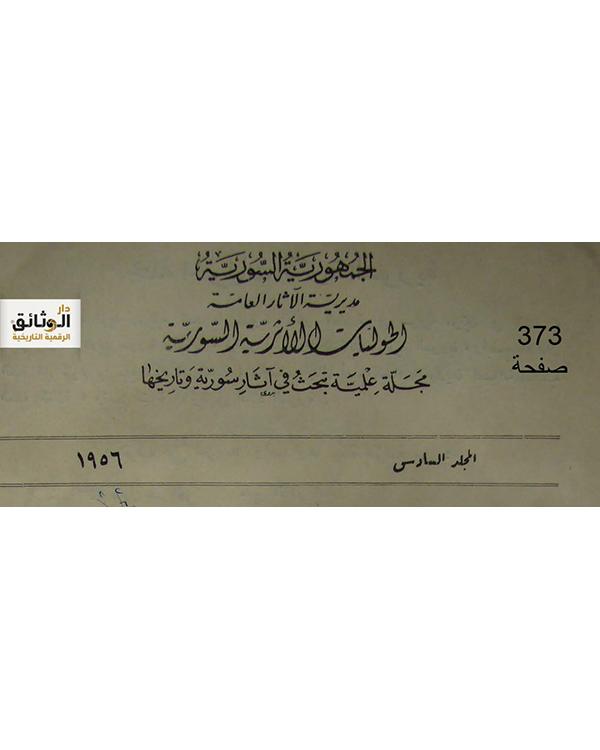 الجمهورية السورية
مديرية الآثار العامة
الحوليات الأثرية السورية
مجلة علمية تبحث في آثار سورية وتاريخها
المجلد السادس
١٩٥٦
373
صفحة
دار
الوثائق
الرقمية التاريخية